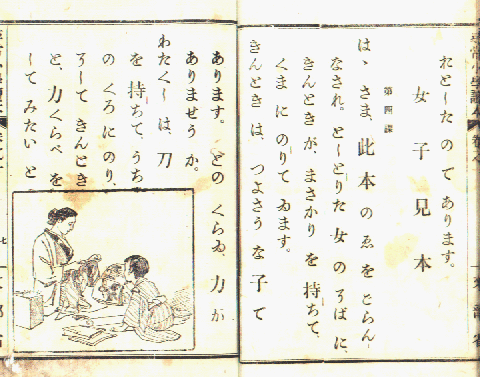 女子兄本
第四課
はゝさま、此本のゑをごらん
なされ。としとりた女のそばに、
きんときが、まさかりを持ちて、
くまにのりてゐます。
きんときは、つよさうな子で
あります。どのくらゐ、力が
ありませうか。
わたくしは、刀
を持ちて、うち
のくろにのり、
そしてきんとき
と、力くらべを
してみたいと
七